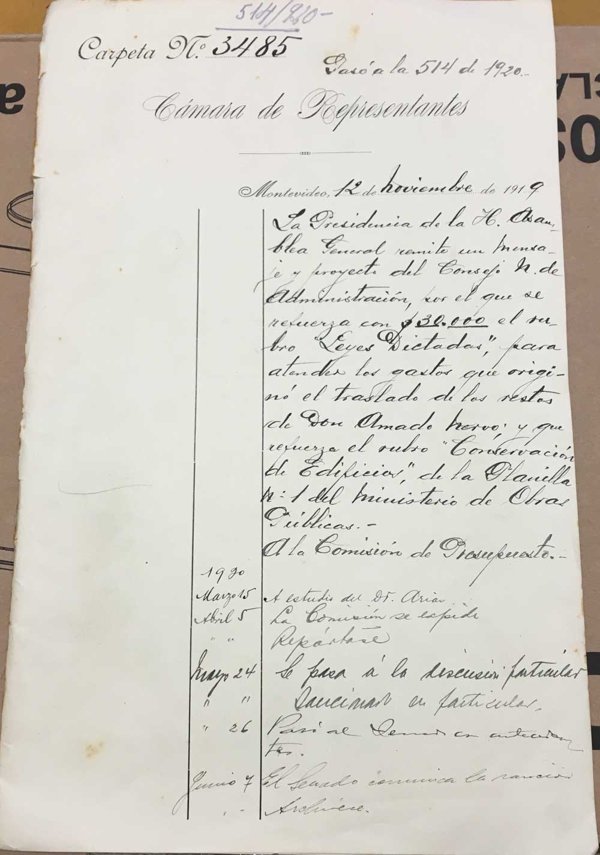 514/920-
Carpeta N.º 3485
Pasó a la 514 de 1920.-
Cámara de Representantes
Montevideo, 12 de noviembre de 1919
La Presidencia de la H. Asam-
blea General remite un mensa-
je y proyecto del Consejo N. de
Administración, por el que se
refuerza con $30.000 el ru-
bro "Leyes Dictadas", para
atender los gastos que origi-
nó el traslado de los restos
de Don Amado Nervo; y que
refuerza el rubro "Conservación
de Edificios", de la Planilla
N.º 1 del Ministerio de Obras
Públicas.-
A la Comisión de Presupuesto.-
1920
Marzo 15 A estudio del Dr. Arias
Abril 5 La Comisión se expide
" " Repártase
Mayo 24 Se pasa á la discusion particular
" " Sancionado en particular.
" 26 Pasó al Senado con anteceden
tes.
Junio 7 El Senado comunica la sancion
" Archívese.
a
CLA
OS